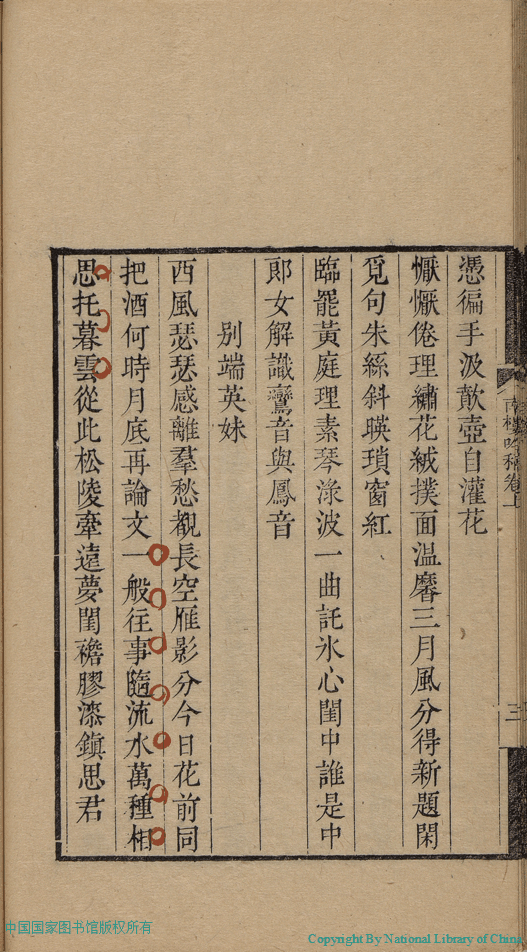 憑徧手汲歕壺自灌花
懨懨倦理繡花絨撲面温馨三月風分得新題閑
覓句朱絲斜暎瑣窗紅
臨罷黃庭理素琴淥波一曲託氷心閨中誰是中
郎女解識鸞音與鳳音
別端英妹
西風瑟瑟感離羣愁覩長空雁影分今日花前同
把酒何時月底再論文一般往事隨流水萬種相
思托暮雲從此松陵牽遠夢閨襜膠漆鎮思君
南樓吟稿卷上
三
中国国家图书馆版权所有
Copyright By National Library of China